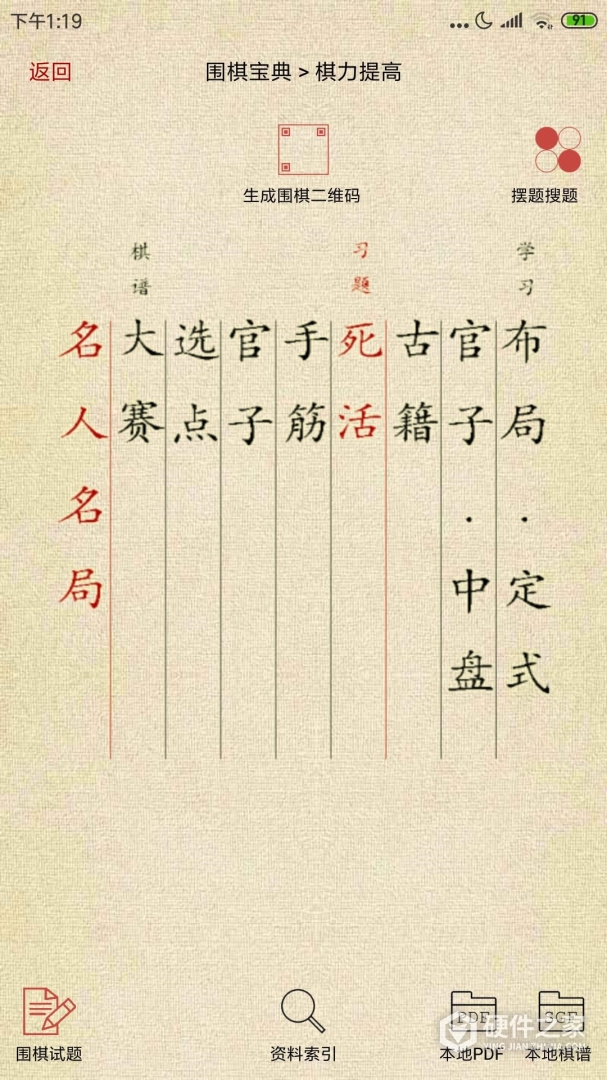 下午1:19
91
返回
围棋宝典 > 棋力提高
生成围棋二维码
摆题搜题
学习
习题
棋谱
布局·定式
官子·中盘
古籍
死活
手筋
官子
选点
大赛
名人名局
围棋试题
资料索引
PDF
本地PDF
SGF
本地棋谱
硬件之家